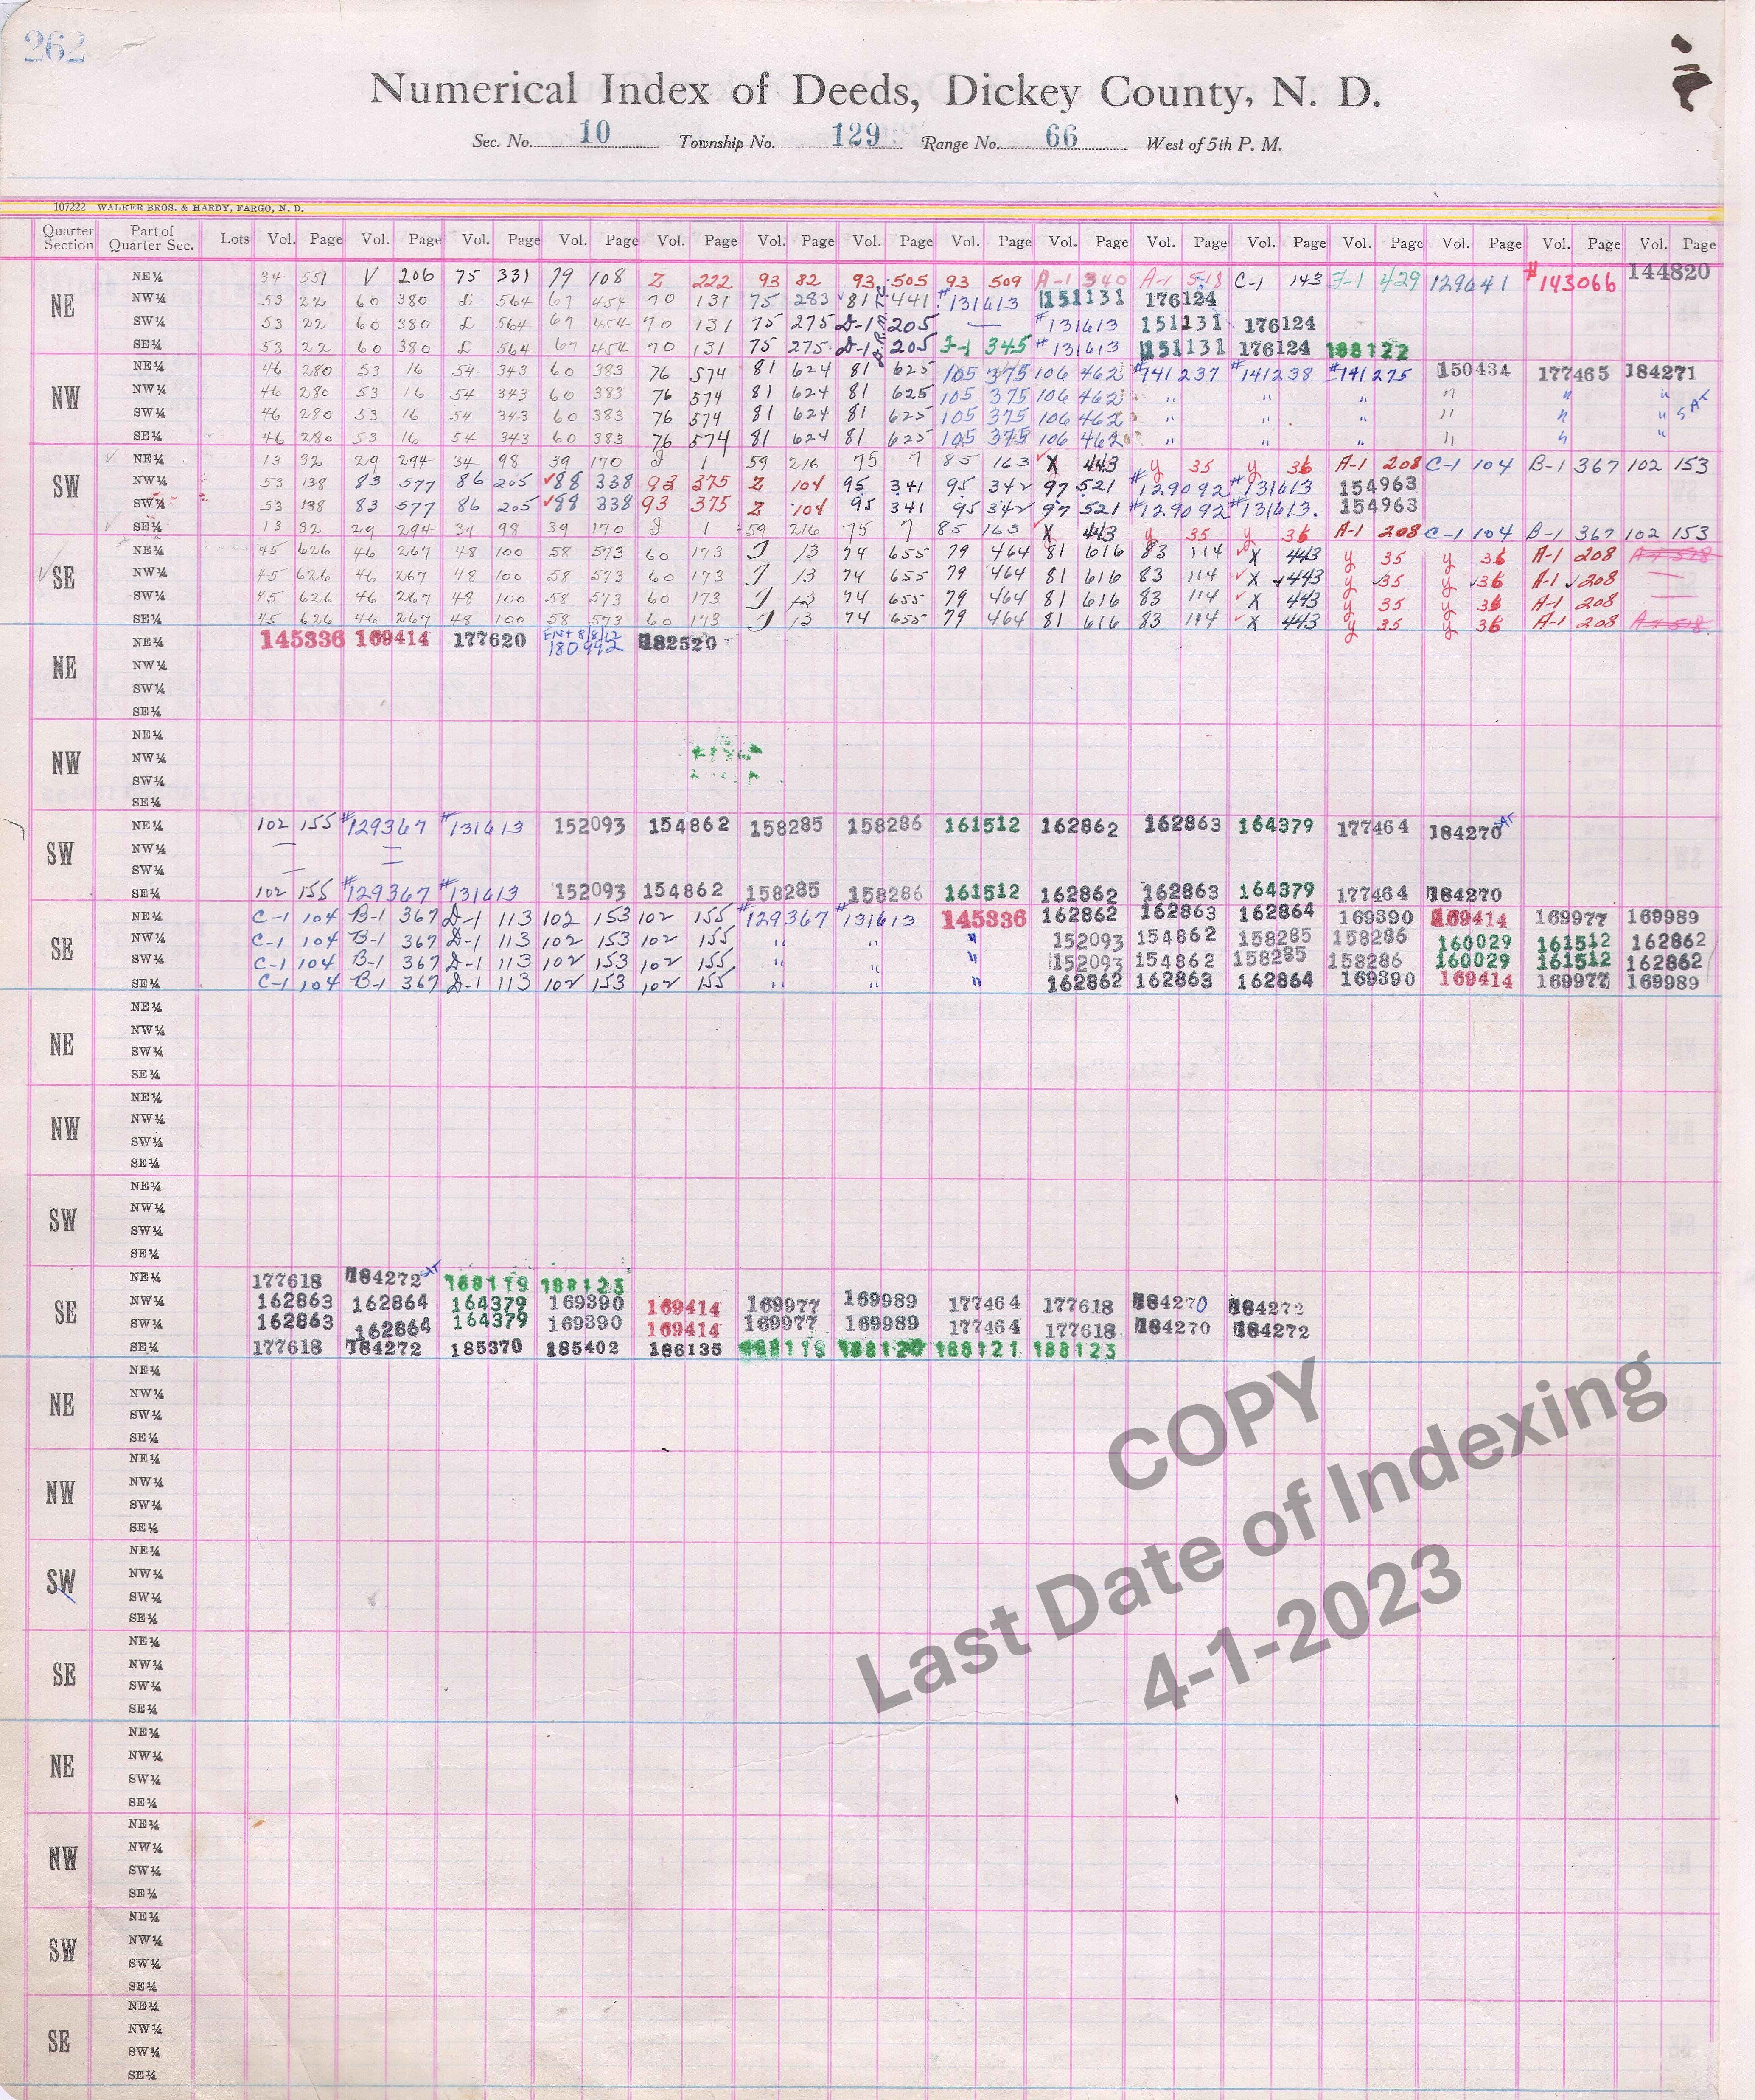 262
Numerical Index of Deeds, Dickey County, N. D.
Sec. No. 10 Township No. 129 Range No. 66 West of 5th P. M.
107222 WALKER BROS. & HARDY, FARGO, N. D.
Quarter Section Part of Quarter Sec. Lots Vol. Page Vol. Page Vol. Page Vol. Page Vol. Page Vol. Page Vol. Page Vol. Page Vol. Page Vol. Page Vol. Page Vol. Page Vol. Page Vol. Page Vol. Page
NE
NE¼ 34 551 V 206 75 331 79 108 Z 222 93 82 93 505 93 509 A-1 340 A-1 518 C-1 143 F-1 429 129641 #143066 144820
NW¼ 53 22 60 380 L 564 67 454 70 131 75 283 81 441 #131613 151131 176124
SW¼ 53 22 60 380 L 564 67 454 70 131 75 275 D-1 205 — #131613 151131 176124
SE¼ 53 22 60 380 L 564 67 454 70 131 75 275 D-1 205 F-1 345 #131613 151131 176124 188122
NW
NE¼ 46 280 53 16 54 343 60 383 76 574 81 624 81 625 105 375 106 462 #141237 #141238 #141275 150434 177465 184271
NW¼ 46 280 53 16 54 343 60 383 76 574 81 624 81 625 105 375 106 462 " " " " " "
SW¼ 46 280 53 16 54 343 60 383 76 574 81 624 81 625 105 375 106 462 " " " " " "
SE¼ 46 280 53 16 54 343 60 383 76 574 81 624 81 625 105 375 106 462 " " " " " "
SW
NE¼ 13 32 29 294 34 98 39 170 J 1 59 216 75 7 85 163 X 443 y 35 y 36 A-1 208 C-1 104 B-1 367 102 153
NW¼ 53 138 83 577 86 205 88 338 93 375 Z 104 95 341 95 342 97 521 #129092 #131613 154963
SW¼ 53 138 83 577 86 205 88 338 93 375 Z 104 95 341 95 342 97 521 #129092 #131613. 154963
SE¼ 13 32 29 294 34 98 39 170 J 1 59 216 75 7 85 163 X 443 y 35 y 36 A-1 208 C-1 104 B-1 367 102 153
SE
NE¼ 45 626 46 267 48 100 58 573 60 173 J 13 74 655 79 464 81 616 83 114 X 443 y 35 y 36 A-1 208 A-1 518
NW¼ 45 626 46 267 48 100 58 573 60 173 J 13 74 655 79 464 81 616 83 114 X 443 y 35 y 36 A-1 208 —
SW¼ 45 626 46 267 48 100 58 573 60 173 J 13 74 655 79 464 81 616 83 114 X 443 y 35 y 36 A-1 208 —
SE¼ 45 626 46 267 48 100 58 573 60 173 J 13 74 655 79 464 81 616 83 114 X 443 y 35 y 36 A-1 208 A-1 518
NE
NE¼ 145336 169414 177620 180992 182520
NW¼
SW¼
SE¼
NW
NE¼
NW¼
SW¼
SE¼
SW
NE¼ 102 155 #129367 #131613 152093 154862 158285 158286 161512 162862 162863 164379 177464 184270
NW¼ — —
SW¼ — —
SE¼ 102 155 #129367 #131613 152093 154862 158285 158286 161512 162862 162863 164379 177464 184270
SE
NE¼ C-1 104 B-1 367 D-1 113 102 153 102 155 #129367 #131613 145336 162862 162863 162864 169390 169414 169977 169989
NW¼ C-1 104 B-1 367 D-1 113 102 153 102 155 " " " 152093 154862 158285 158286 160029 161512 162862
SW¼ C-1 104 B-1 367 D-1 113 102 153 102 155 " " " 152093 154862 158285 158286 160029 161512 162862
SE¼ C-1 104 B-1 367 D-1 113 102 153 102 155 " " " 162862 162863 162864 169390 169414 169977 169989
NE
NE¼
NW¼
SW¼
SE¼
NW
NE¼
NW¼
SW¼
SE¼
SW
NE¼
NW¼
SW¼
SE¼
SE
NE¼ 177618 184272 188119 188123
NW¼ 162863 162864 164379 169390 169414 169977 169989 177464 177618 184270 184272
SW¼ 162863 162864 164379 169390 169414 169977 169989 177464 177618 184270 184272
SE¼ 177618 184272 185370 185402 186135 188119 188120 188121 188123
NE
NE¼
NW¼
SW¼
SE¼
NW
NE¼
NW¼
SW¼
SE¼
SW
NE¼
NW¼
SW¼
SE¼
SE
NE¼
NW¼
SW¼
SE¼
NE
NE¼
NW¼
SW¼
SE¼
NW
NE¼
NW¼
SW¼
SE¼
SW
NE¼
NW¼
SW¼
SE¼
SE
NE¼
NW¼
SW¼
SE¼
COPY
Last Date of Indexing
4-1-2023